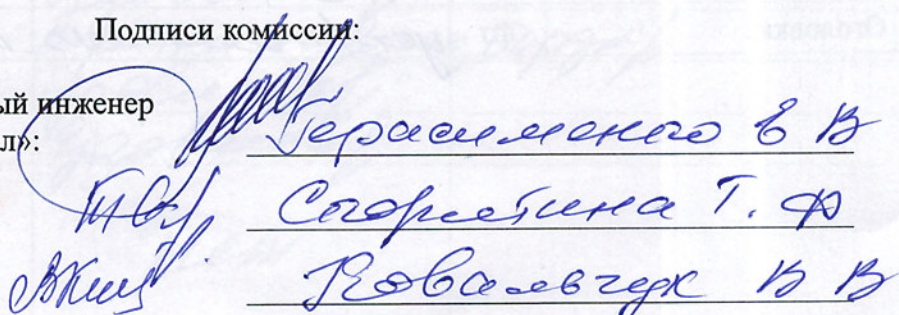 Подписи комиссии:
ый инженер
л»: Герасименко В В
Т. Ф
Ковальчук В В